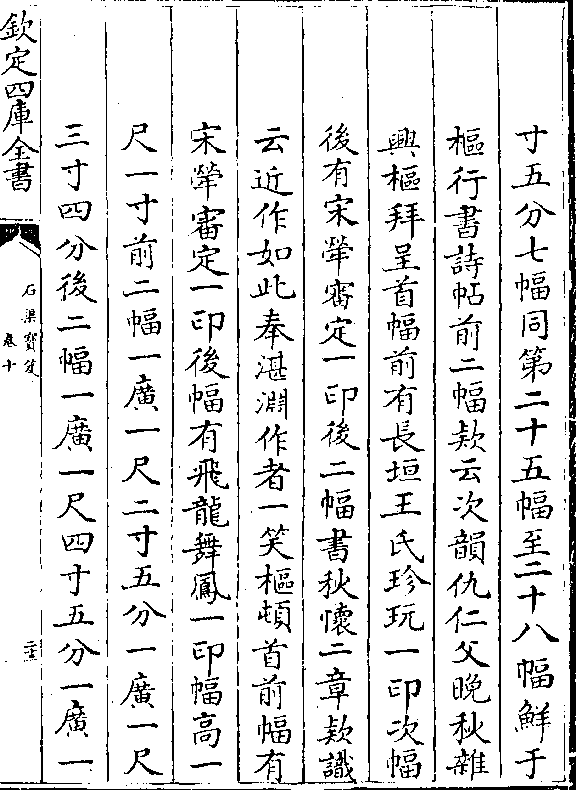 寸五分七幅同第二十五幅至二十八幅鮮于
樞行書詩帖前二幅欵云次韻仇仁父晚秋雜
興樞拜呈首幅前有長垣王氏珍玩一印次幅
後有宋犖審定一印後二幅書秋懷二章欵識
云近作如此奉湛淵作者一笑樞頓首前幅有
宋犖審定一印後幅有飛龍舞鳳一印幅高一
尺一寸前二幅一廣一尺二寸五分一廣一尺
三寸四分後二幅一廣一尺四寸五分一廣一
欽定四庫全書
石渠寶笈
卷十